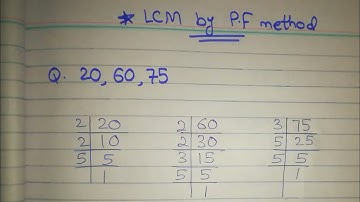 * LCM by P.F method
Q. 20, 60, 75
2 20 2 60 3 75
2 10 2 30 5 25
5 5 3 15 5 5
1 5 5 1
1